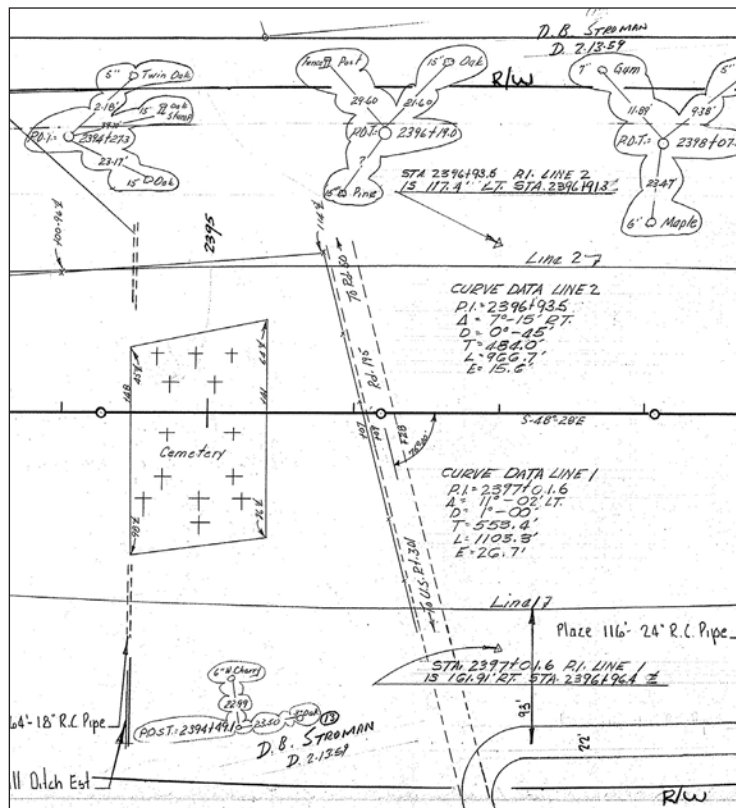 D. B. STROMAN
D. 2.13.59
R/W
5" Twin Oak
2.18'
15" Oak
Stump
P.O.T. = 2394+27.3
23.17'
15" Oak
Fence Post
15" Oak
29.60
21.60
P.O.T. = 2396+19.0
?
15" Pine
7" Gum
5"
11.89'
9.38'
P.O.T. = 2398+07.
23.47'
6" Maple
STA 2396+93.5 P.I. LINE 2
IS 117.4' LT. STA. 2396+91.3
100.96
2395
114
Line 2
To Rd. 50
Rd. 195
CURVE DATA LINE 2
P.I. = 2396+93.5
Δ = 7°-15' RT.
D = 0°-45'
T = 484.0'
L = 966.7'
E = 15.6'
148
45
64
141
Cemetery
98
76
+07
+09
+28
76°00'
S-48°-28'E
CURVE DATA LINE 1
P.I. = 2397+01.6
Δ = 11°-02' LT.
D = 1°-00'
T = 553.4'
L = 1103.3'
E = 26.7'
To U.S. Rt. 301
Line 1
Place 116'- 24" R.C. Pipe
STA. 2397+01.6 P.I. LINE 1
IS 161.91' RT. STA. 2396+96.4
93'
22'
6" W. Cherry
22.99
P.O.S.T. = 2394+49.1
23.50
Oak
13
D. B. STROMAN
D. 2.13.59
64'- 18" R.C Pipe
ll Ditch Est
R/W